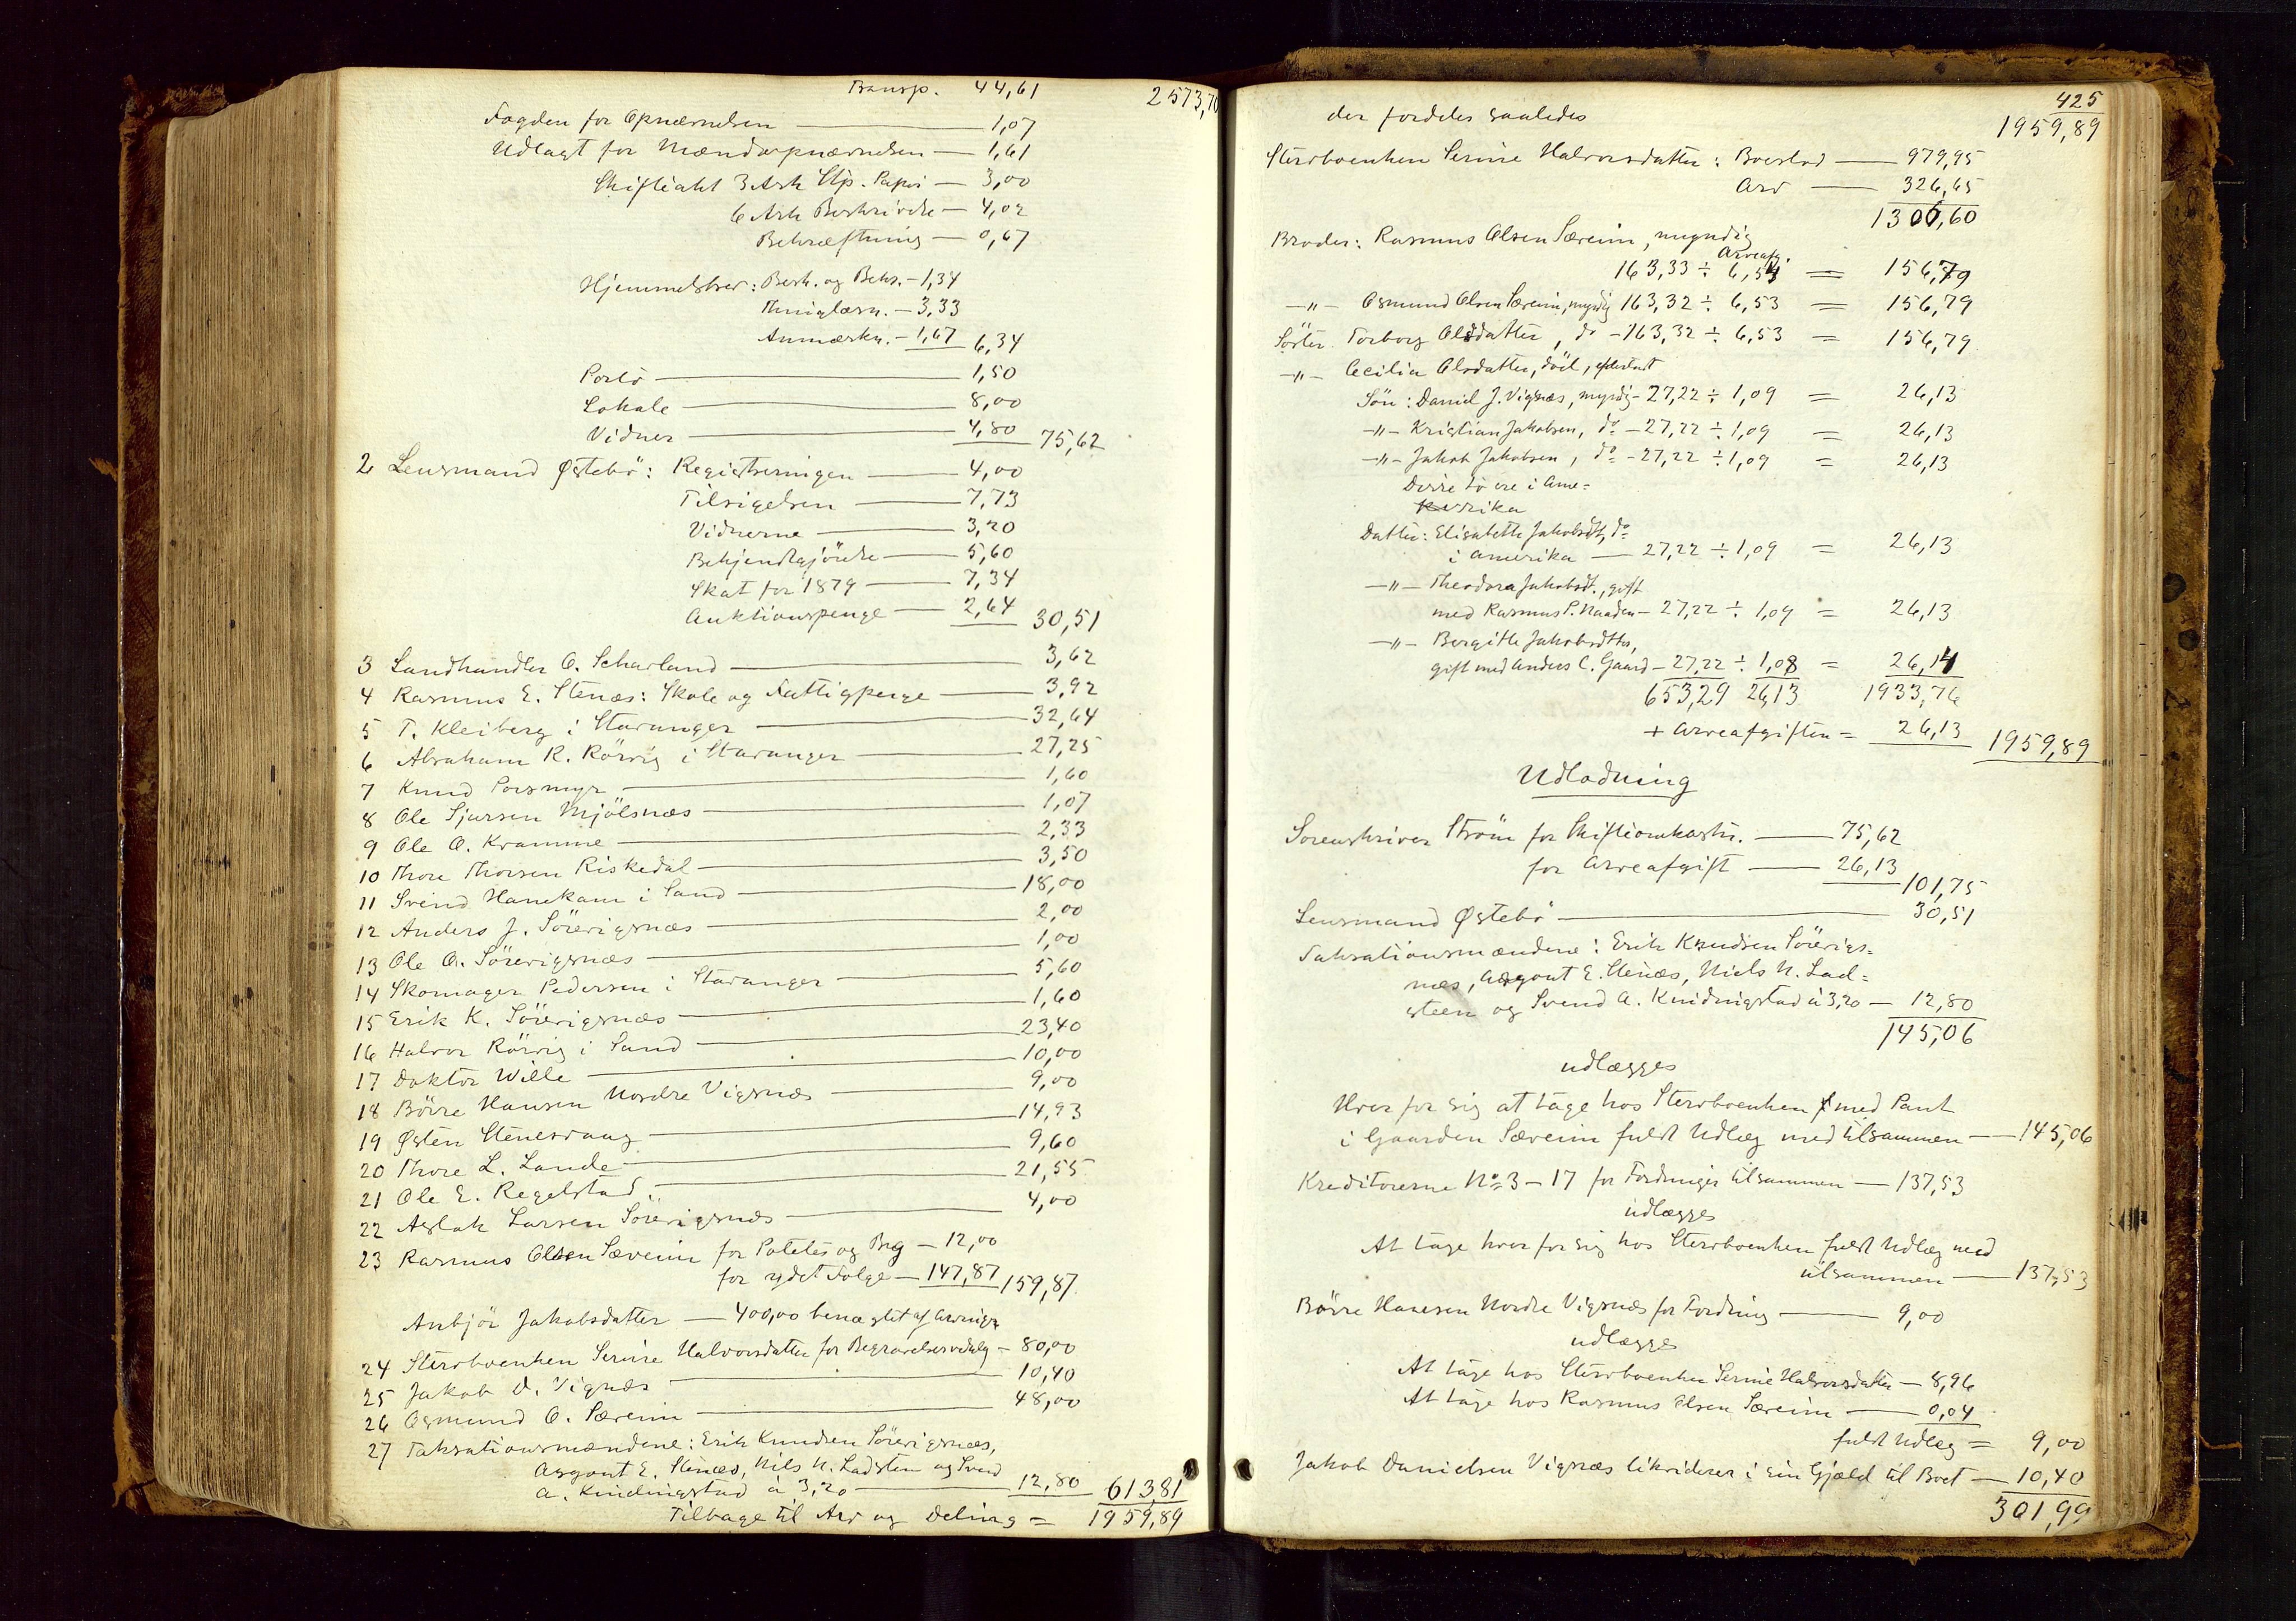 Transp. 44,61 2573,70
Fogden for Opnævnelsen — 1,07
Udlagt for Mændsopnævnelsen — 1,61
Skifteakt 3 Ark Stp. Papir — 3,00
6 Ark Beskrivelse — 4,02
Bekræftning — 0,67
Hjemmelsbrev: Besk. og Bekr. — 1,34
Thinglæsn. — 3,33
Anmærkn. — 1,67 6,34
Porto — 1,50
Lokale — 8,00
Vidner — 4,80 75,62
2 Lensmand Østebö: Registreringen — 4,00
Tilsigelsen — 7,73
Vidnerne — 3,20
Bekjendtgjörelse — 5,60
Skat for 1879 — 7,34
Auktionspenge — 2,64 30,51
3 Landhandler O. Scharland — 3,62
4 Rasmus E. Stenæs: Skole og Fattigpenge — 3,92
5 T. Kleiberg i Stavanger — 32,64
6 Abraham R. Rörvig i Stavanger — 27,25
7 Knud Porsmyr — 1,60
8 Ole Sjursen Mjölsnæs — 1,07
9 Ole O. Kramme — 2,33
10 Thore Thorsen Riskedal — 3,50
11 Svend Hanekam i Sand — 18,00
12 Anders J. Sörevigsnæs — 2,00
13 Ole O. Sörevigsnæs — 1,00
14 Skomager Pedersen i Stavanger — 5,60
15 Erik K. Sörevigsnæs — 1,60
16 Halvor Rörvig i Sand — 23,40
17 Doktor Wille — 10,00
18 Börre Hansen Nordre Vigsnæs — 9,00
19 Østen Stenesvaag — 14,93
20 Thore L. Lande — 9,60
21 Ole E. Regelstad — 21,55
22 Aslak Larsen Sörevigsnæs — 4,00
23 Rasmus Olsen Særeim for Potetes og Byg — 12,00
for ydet Folge — 147,87 159,87
Anbjör Jakobsdatter — 400,00 benægtet af Arvinger
24 Stervboenken Serine Halvorsdatter for Begravelsesudlæg — 80,00
25 Jakob D. Vignæs — 10,40
26 Osmund O. Særeim — 48,00
27 Taksationsmændene: Erik Knudsen Sörevigsnæs,
Asgout E. Stenæs, Nils N. Ladsten og Svend
A. Kindingstad á 3,20 — 12,80 613,81
Tilbage til Arv og Deling = 1959,89
425
der fordeles saaledes 1959,89
Stervboenken Serine Halvorsdatter: Boeslod — 979,95
Arv — 326,65
1306,60
Broder: Rasmus Olsen Særeim, myndig
Arveafg.
163,33 ÷ 6,54 = 156,79
—„— Osmund Olsen Særeim, myndig 163,32 ÷ 6,53 = 156,79
Söster Torborg Olsdatter, do — 163,32 ÷ 6,53 = 156,79
—„— Cecilia Olsdatter, död, efterladt
Sön: Daniel J. Vigsnæs, myndig — 27,22 ÷ 1,09 = 26,13
—„— Kristian Jakobsen, do — 27,22 ÷ 1,09 = 26,13
—„— Jakob Jakobsen, do — 27,22 ÷ 1,09 = 26,13
Disse to ere i Ame=
rika
Datter: Elisabeth Jakobsdt, do
i Amerika — 27,22 ÷ 1,09 = 26,13
—„— Theodora Jakobsdt., gift
med Rasmus P. Naaden — 27,22 ÷ 1,09 = 26,13
—„— Bergitte Jakobsdtter,
gift med Anders C. Gaard — 27,22 ÷ 1,08 = 26,14
653,29 26,13 1933,76
+ Arveafgiften = 26,13 1959,89
Udlodning
Sorenskriver Ström for Skifteomkostn. — 75,62
for Arveafgift — 26,13
101,75
Lensmand Østebö — 30,51
Taksationsmændene: Erik Knudsen Sörevigs=
næs, Asgout E. Stenæs, Niels N. Lad=
steen og Svend A. Kindingstad á 3,20 — 12,80
145,06
udlægges
Hver for sig at tage hos Stervboenken med Pant
i Gaarden Særeim fuldt Udlæg med tilsammen — 145,06
Kreditorerne No 3–17 for Fordringer tilsammen — 137,53
udlægges
At tage hver for sig hos Stervboenken fuldt Udlæg med
tilsammen — 137,53
Börre Hansen Nordre Vigsnæs for Fordring — 9,00
udlægges
At tage hos Stervboenken Serine Halvorsdatter — 8,96
At tage hos Rasmus Olsen Særeim — 0,04
fuldt Udlæg = 9,00
Jakob Danielsen Vignæs likviderer i sin Gjæld til Boet — 10,40
301,99